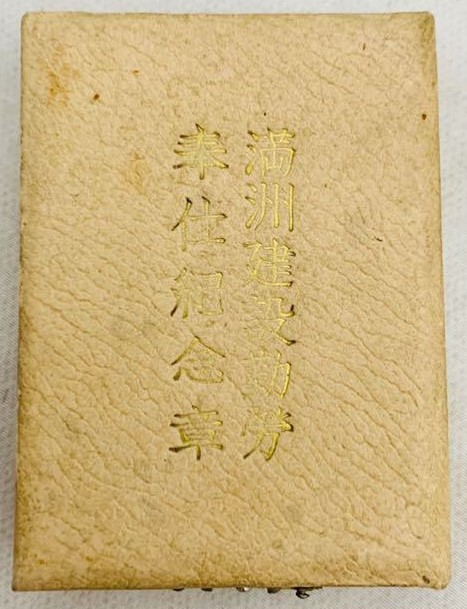 満洲建設勤労
奉仕紀念章